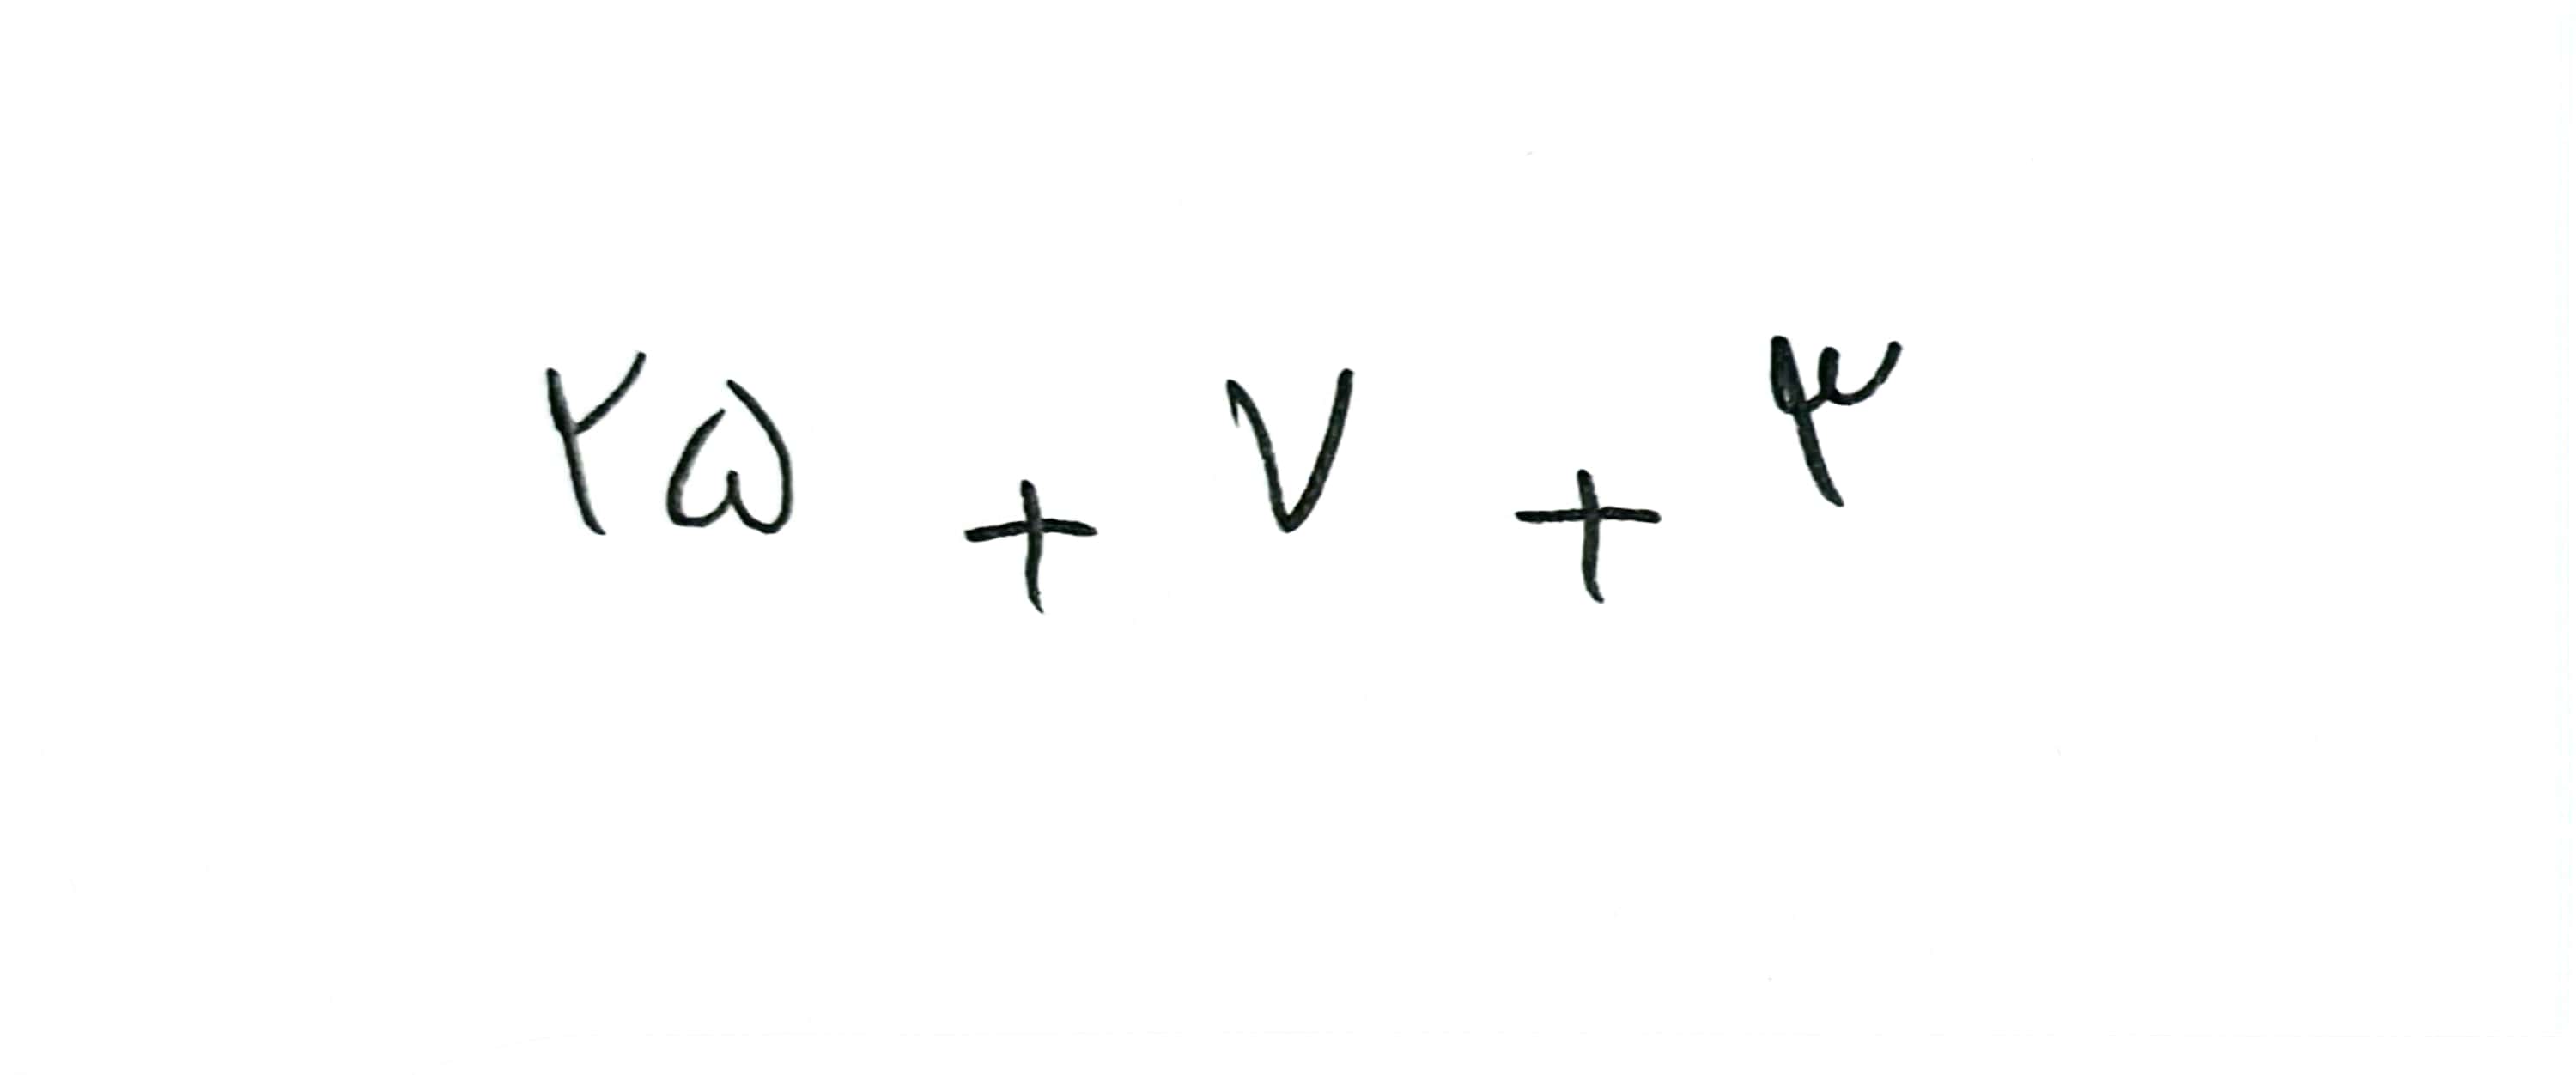 ۲۵ + ۷ + ۳